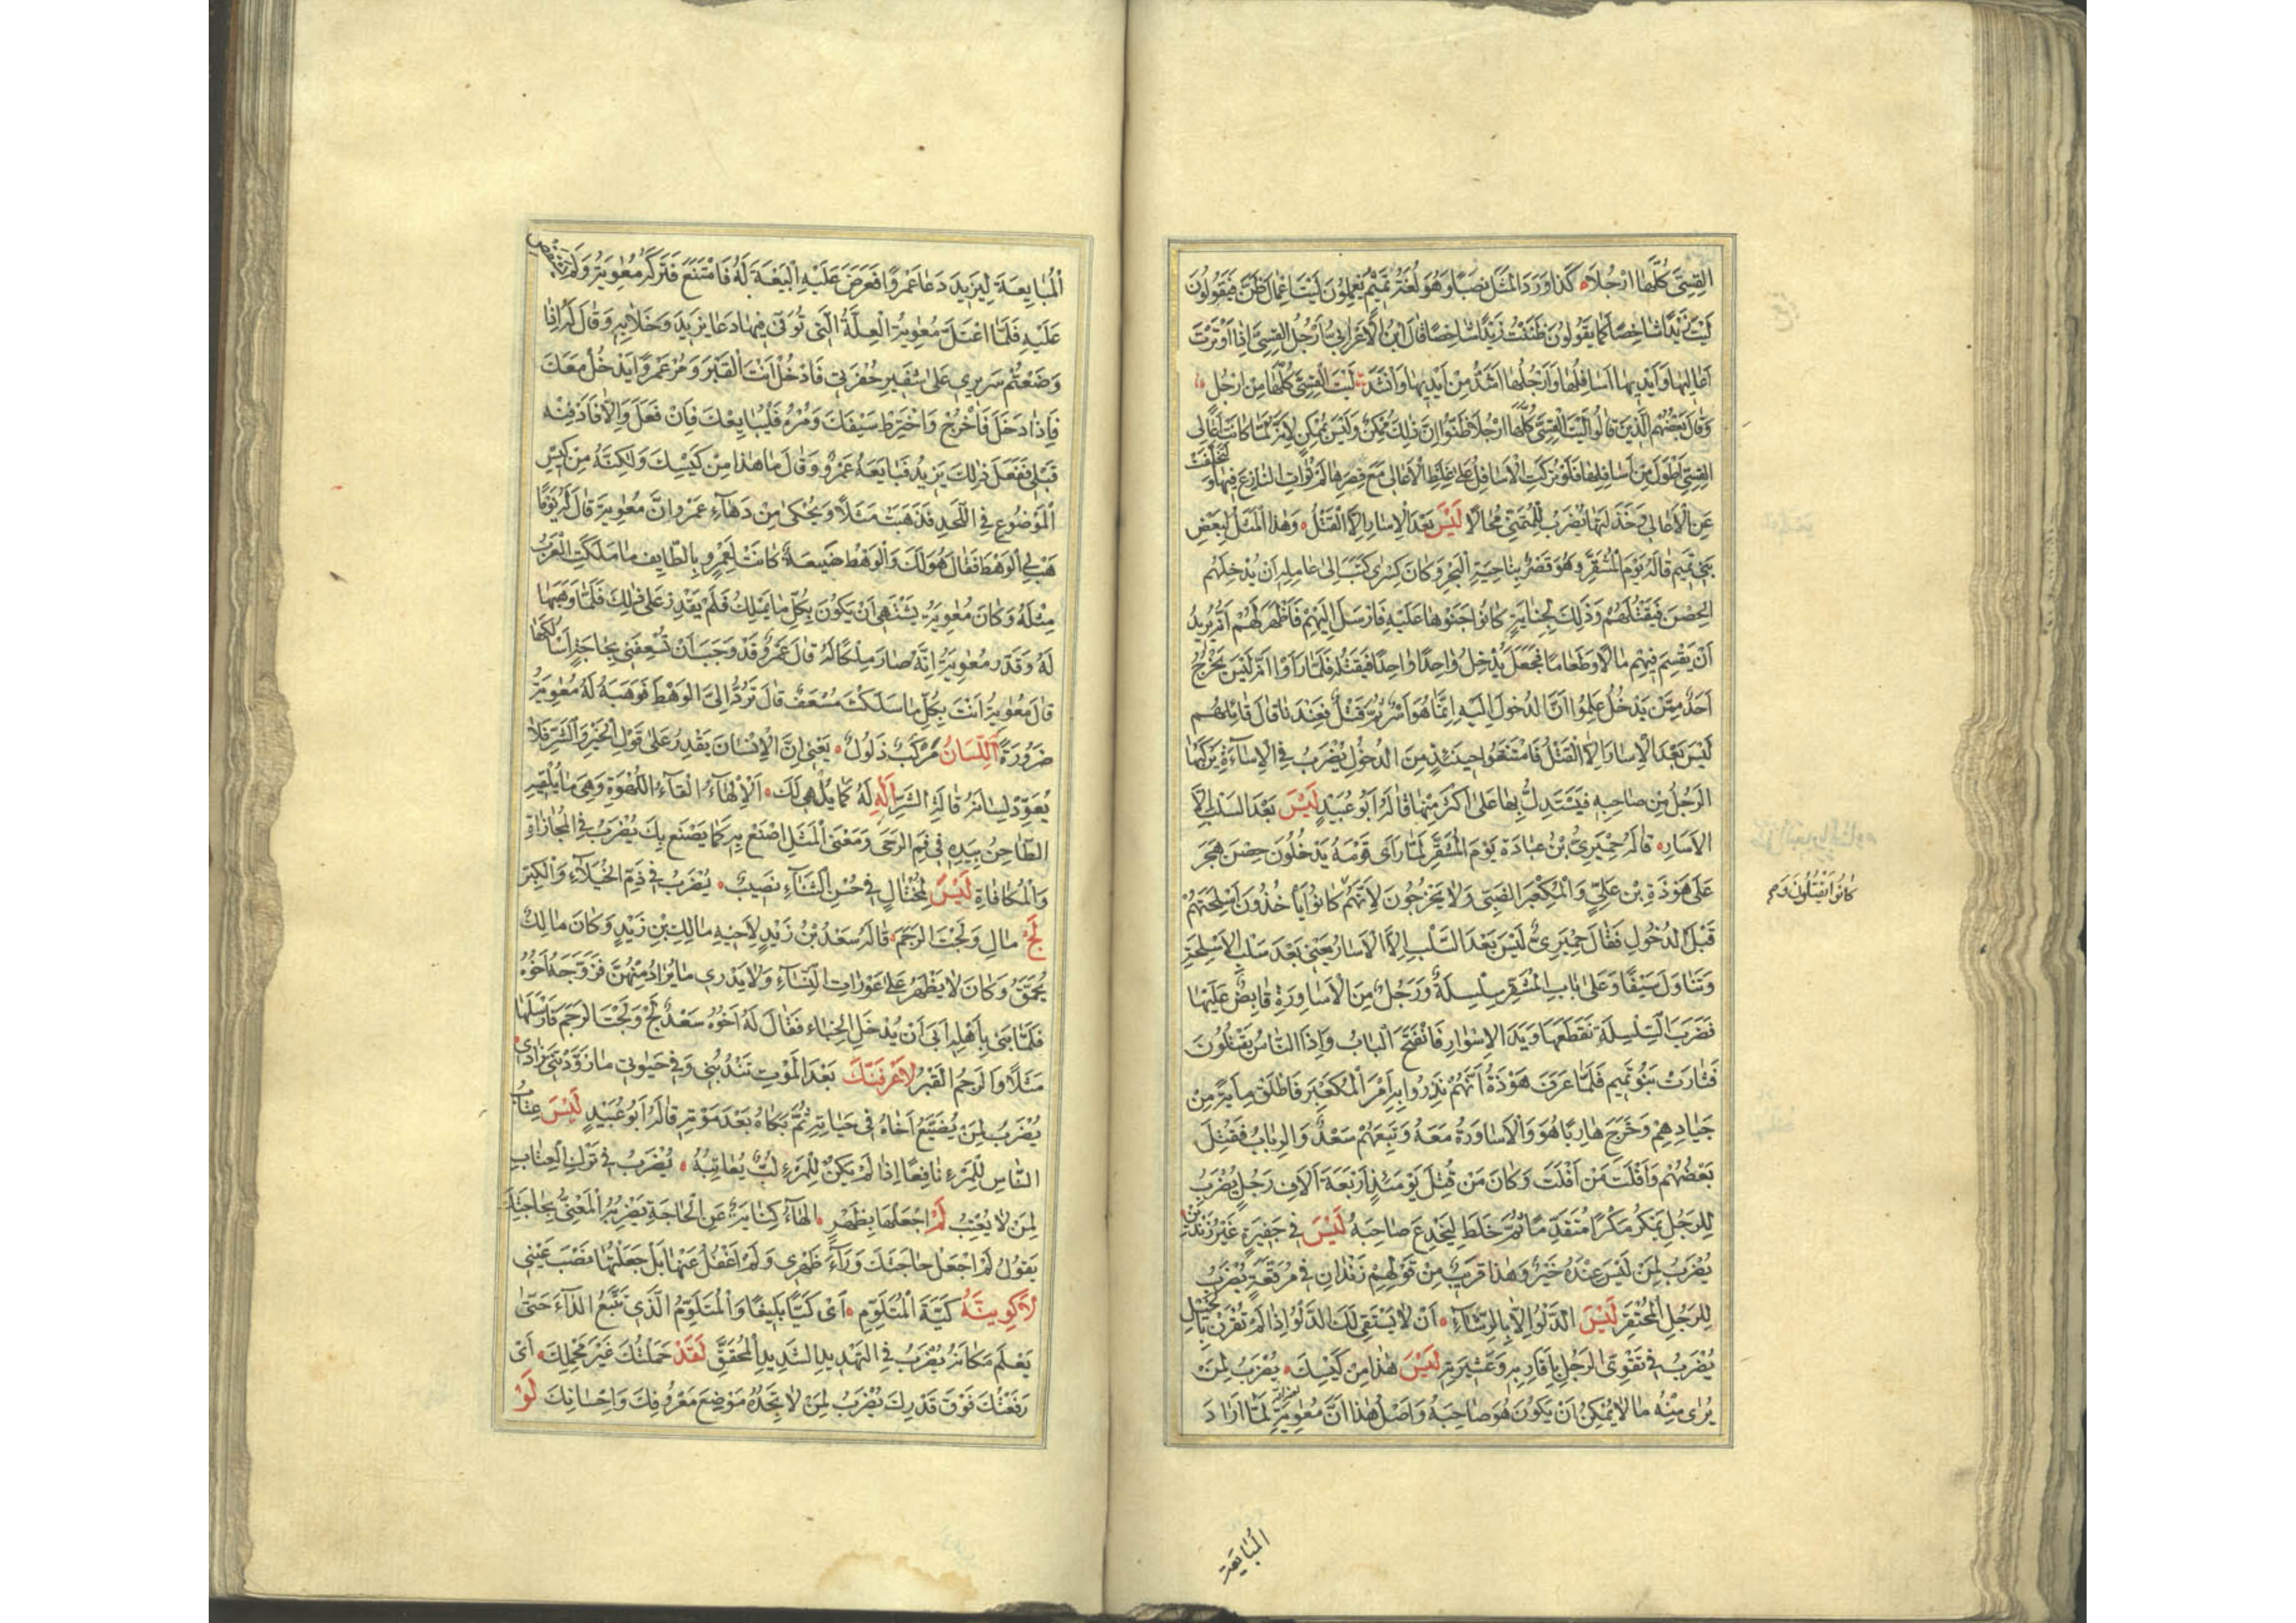 القِسِيَّ كُلَّهَا اَرْجُلًا كَذَا وَرَدَ الْمَثَلُ نَصْبًا وَهُوَ لُغَةُ تَمِيْمٍ يُعْمِلُوْنَ لَيْتَ اِعْمَالَ ظَنَّ فَيَقُولُونَ
لَيْتَ زَيْدًا شَاخِصًا كَمَا يَقُولُونَ ظَنَنْتُ زَيْدًا شَاخِصًا قَالَ ابْنُ الْاَعْرَابِيِّ اَرْجُلُ الْقِسِيِّ اِذَا اُوْتِرَتْ
اَعَالِيْهَا وَاَيْدِيْهَا اَسَافِلُهَا وَاَرْجُلُهَا اَشَدُّ مِنْ اَيْدِيْهَا وَاَنْشَدَ لَيْتَ الْقِسِيَّ كُلَّهَا مِنْ اَرْجُلِ
وَقَالَ بَعْضُهُمُ الَّذِينَ قَالُوا لَيْتَ الْقِسِيَّ كُلَّهَا اَرْجُلًا ظَنُّوا اِنَّ ذٰلِكَ مُمْكِنٌ وَلَيْسَ بِمُمْكِنٍ لِاَنَّهُ لَمَّا كَانَتْ اَعَالِي
القِسِيِّ اَطْوَلَ مِنْ اَسَافِلِهَا فَلَوْ تُرِكَتِ الْاَسَافِلُ عَلٰى غِلَظِ الْاَعَالِي مَعَ قِصَرِهَا لَمْ تُوَاتِ النَّازِعَ فِيْهَا وَ لَتَخَلَّفَتْ
عَنِ الْاَعَالِي وَخَذَلَتْهَا يُضْرَبُ لِلْمُتَمَنِّي مُحَالًا لَيْسَ بَعْدَ الْاِسَارِ اِلَّا الْقَتْلُ وَهٰذَا الْمَثَلُ لِبَعْضِ
بَنِي تَمِيْمٍ قَالَهُ يَوْمَ الْمُشَقَّرِ وَهُوَ قَصْرٌ بِنَاحِيَةِ الْبَحْرِ وَكَانَ كِسْرٰى كَتَبَ اِلٰى عَامِلِهِ اَنْ يُدْخِلَهُمْ
الحِصْنَ فَيَقْتُلَهُمْ وَذٰلِكَ لِجِنَايَةٍ كَانُوا جَنَوْهَا عَلَيْهِ فَاَرْسَلَ اِلَيْهِمْ فَاَظْهَرَ لَهُمْ اَنَّهُ يُرِيْدُ
اَنْ يَقْسِمَ فِيْهِمْ مَالًا وَطَعَامًا فَجَعَلَ يُدْخِلُ وَاحِدًا وَاحِدًا فَيَقْتُلُهُ فَلَمَّا رَاَوْا اَنَّهُ لَيْسَ يَخْرُجُ
اَحَدٌ مِمَّنْ يَدْخُلُ عَلِمُوا اَنَّ الدُّخُولَ اِلَيْهِ اِنَّمَا هُوَ اَسْرٌ ثُمَّ قَتْلٌ فَعِنْدَهَا قَالَ قَائِلُهُمْ
لَيْسَ بَعْدَ الْاِسَارِ اِلَّا الْقَتْلُ فَامْتَنَعُوا حِيْنَئِذٍ مِنَ الدُّخُولِ يُضْرَبُ فِي الْاِسَاءَةِ يَرْكَبُهَا
الرَّجُلُ مِنْ صَاحِبِهِ فَيُسْتَدَلُّ بِهَا عَلٰى اَكْثَرَ مِنْهَا قَالَهُ اَبُو عُبَيْدٍ لَيْسَ بَعْدَ السَّلْبِ اِلَّا
الْاِسَارُ قَالَهُ حِمْيَرِيُّ بْنُ عُبَادَةَ يَوْمَ الْمُشَقَّرِ لَمَّا رَاٰى قَوْمَهُ يَدْخُلُونَ حِصْنَ هَجَرَ
عَلٰى هَوْذَةَ بْنِ عَلِيٍّ وَالْمُكَعْبَرِ الضَّبِّيِّ وَلَا يَخْرُجُونَ لِاَنَّهُمْ كَانُوا يَأْخُذُونَ اَسْلِحَتَهُمْ
كَانُوا يُقْتَلُونَ
قَبْلَ الدُّخُولِ فَقَالَ حِمْيَرِيٌّ لَيْسَ بَعْدَ السَّلْبِ اِلَّا الْاِسَارُ يَعْنِي بَعْدَ سَلْبِ الْاَسْلِحَةِ
وَتَنَاوَلَ سَيْفًا وَعَلٰى بَابِ الْمُشَقَّرِ سِلْسِلَةٌ وَرَجُلٌ مِنَ الْاَسَاوِرَةِ قَابِضٌ عَلَيْهَا
فَضَرَبَ السِّلْسِلَةَ فَقَطَعَهَا وَيَدَ الْاِسْوَارِ فَانْفَتَحَ الْبَابُ وَاِذَا النَّاسُ يُقْتَلُونَ
فَثَارَتْ بَنُو تَمِيْمٍ فَلَمَّا عَرَفَ هَوْذَةُ اَنَّهُمْ نَذِرُوا بِهِ اَمَرَ الْمُكَعْبَرَ فَاَطْلَقَ مِائَةً مِنْ
جِيَادِهِمْ وَخَرَجَ هَارِبًا هُوَ وَالْاَسَاوِرَةُ مَعَهُ وَتَبِعَهُمْ سَعْدٌ وَالرِّبَابُ فَقُتِلَ
بَعْضُهُمْ وَاَفْلَتَ مَنْ اَفْلَتَ وَكَانَ مَنْ قُتِلَ يَوْمَئِذٍ اَرْبَعَةَ اٰلَافِ رَجُلٍ يُضْرَبُ
لِلرَّجُلِ يَمْكُرُ مَكْرًا مُتَقَدِّمًا ثُمَّ خَلَطَ لِيَخْدَعَ صَاحِبَهُ لَيْسَ فِي جَفِيْرِهِ غَيْرُ زَنْدَيْنِ
يُضْرَبُ لِمَنْ لَيْسَ عِنْدَهُ خَيْرٌ وَهٰذَا قَرِيْبٌ مِنْ قَوْلِهِمْ زَنْدَانِ فِي مُرَقَّعَةٍ يُضْرَبُ
لِلرَّجُلِ الْمُحْتَقَرِ لَيْسَ الدَّلْوُ اِلَّا بِالرِّشَاءِ اَنْ لَا يَسْتَقِيَ لَكَ الدَّلْوُ اِذَا لَمْ تُقْرَنْ بِالْحَبْلِ
يُضْرَبُ فِي تَقَوِّي الرَّجُلِ بِاَقَارِبِهِ وَعَشِيْرَتِهِ لَيْسَ هٰذَا مِنْ كَيْسِكَ يُضْرَبُ لِمَنْ
يُرٰى مِنْهُ مَا لَا يُمْكِنُ اَنْ يَكُونَ هُوَ صَاحِبَهُ وَاَصْلُ هٰذَا اَنَّ مُعٰوِيَةَ لَمَّا اَرَادَ
المُبَايَعَة
الْمُبَايَعَةَ لِيَزِيْدَ دَعَا عَمْرًوا فَعَرَضَ عَلَيْهِ الْبَيْعَةَ لَهُ فَامْتَنَعَ فَتَرَكَهُ مُعٰوِيَةُ وَلَمْ يَسْتَقْصِ
عَلَيْهِ فَلَمَّا اعْتَلَّ مُعٰوِيَةُ الْعِلَّةَ الَّتِي تُوُفِّيَ فِيْهَا دَعَا يَزِيْدَ وَخَلَا بِهِ وَقَالَ لَهُ اِذَا
وَضَعْتُمْ سَرِيْرِي عَلٰى شَفِيْرِ حُفْرَتِي فَادْخُلْ اَنْتَ الْقَبْرَ وَمُرْ عَمْرًوا يَدْخُلْ مَعَكَ
فَاِذَا دَخَلَ فَاخْرُجْ وَاخْتَرِطْ سَيْفَكَ وَمُرْهُ فَلْيُبَايِعْكَ فَاِنْ فَعَلَ وَاِلَّا فَادْفِنْهُ
قَبْلِي فَفَعَلَ ذٰلِكَ يَزِيْدُ فَبَايَعَهُ عَمْرٌو وَقَالَ مَا هٰذَا مِنْ كَيْسِكَ وَلٰكِنَّهُ مِنْ كَيْسِ
الْمَوْضُوعِ فِي اللَّحْدِ فَذَهَبَتْ مَثَلًا وَيُحْكٰى مِنْ دَهَاءِ عَمْرٍو اِنَّ مُعٰوِيَةَ قَالَ لَهُ يَوْمًا
هَبْ لِي الْوَهْطَ فَقَالَ هُوَ لَكَ وَالْوَهْطُ ضَيْعَةٌ كَانَتْ لِعَمْرٍو بِالطَّائِفِ مَا مَلَكَتِ الْعَرَبُ
مِثْلَهُ وَكَانَ مُعٰوِيَةُ يَشْتَهِي اَنْ يَكُونَ بِكُلِّ مَا يَمْلِكُ فَلَمْ يَقْدِرْ عَلٰى ذٰلِكَ فَلَمَّا وَهَبَهَا
لَهُ وَقَدَّرَ مُعٰوِيَةُ اِنَّهُ صَارَ مِلْكًا لَهُ قَالَ عَمْرٌو قَدْ وَجَبَ اَنْ تُسْعِفَنِي بِحَاجَةٍ اَسْأَلُكَهَا
قَالَ مُعٰوِيَةُ اَنْتَ بِكُلِّ مَا سَأَلْتَ مُسْعَفٌ قَالَ تَرُدُّ اِلَيَّ الْوَهْطَ فَوَهَبَهُ لَهُ مُعٰوِيَةُ
ضَرُورَةً اَللِّسَانُ مَرْكَبٌ ذَلُولٌ يَعْنِي اِنَّ الْاِنْسَانَ يَقْدِرُ عَلٰى قَوْلِ الْخَيْرِ وَالشَّرِّ فَلَا
يُعَوِّدْ لِسَانَهُ قَالَةَ الشَّرِّ اَلْهِ لَهُ كَمَا يُلْهِي لَكَ اَلْاِلْهَاءُ الْقَاءُ اللُّهْوَةِ وَهِيَ مَا يُلْقِيْهِ
الطَّاحِنُ بِيَدِهِ فِي فَمِ الرَّحٰى وَمَعْنَى الْمَثَلِ اِصْنَعْ بِهِ كَمَا يَصْنَعُ بِكَ يُضْرَبُ فِي الْمُجَازَاةِ
وَالْمُكَافَاةِ لَيْسَ لِمُخْتَالٍ فِي حُسْنِ الثَّنَاءِ نَصِيْبٌ يُضْرَبُ فِي ذَمِّ الْخُيَلَاءِ وَالْكِبْرِ
لَجَّ مَالِ وَلَجَتَ الرَّجَمَ قَالَهُ سَعْدُ بْنُ زَيْدٍ لِاَخِيْهِ مَالِكِ بْنِ زَيْدٍ وَكَانَ مَالِكٌ
يُحَمَّقُ وَكَانَ لَا يَظْهَرُ عَلٰى عَوْرَاتِ النِّسَاءِ وَلَا يَدْرِي مَا يُرَادُ مِنْهُنَّ فَزَوَّجَهُ اَخُوْهُ
فَلَمَّا بَنٰى بِاَهْلِهِ اَبٰى اَنْ يَدْخُلَ الْخِبَاءَ فَقَالَ لَهُ اَخُوْهُ سَعْدٌ لِجْ وَلَجْتَ الرَّجَمَ فَاَرْسَلَهَا
مَثَلًا وَالرَّجَمُ الْقَبْرُ لَاَعْرِفَنَّكَ بَعْدَ الْمَوْتِ تَنْدُبُنِي وَفِي حَيٰوتِي مَا زَوَّدْتَنِي زَادِي
يُضْرَبُ لِمَنْ يُضَيِّعُ اَخَاهُ فِي حَيَاتِهِ ثُمَّ بَكَاهُ بَعْدَ مَوْتِهِ قَالَهُ اَبُو عُبَيْدٍ لَيْسَ عِتَابُ
النَّاسِ لِلْمَرْءِ نَافِعًا اِذَا لَمْ يَكُنْ لِلْمَرْءِ لُبٌّ يُعَاتِبُهُ يُضْرَبُ فِي تَرْكِ الْعِتَابِ
لِمَنْ لَا يُعْتِبُ لَمْ اَجْعَلْهَا بِظَهْرٍ الْهَاءُ كِنَايَةٌ عَنِ الْحَاجَةِ يَضْرِبُهُ الْمَعْنِيُّ بِحَاجَتِكَ
يَقُولُ لَمْ اَجْعَلْ حَاجَتَكَ وَرَاءَ ظَهْرِي وَلَمْ اَغْفُلْ عَنْهَا بَلْ جَعَلْتُهَا نَصْبَ عَيْنِي
لَاَكْوِيَنَّهُ كَيَّةَ الْمُتَلَوِّمِ اَيْ كَيًّا بَلِيْغًا وَالْمُتَلَوِّمُ الَّذِي يَتَّبِعُ الدَّاءَ حَتّٰى
يَعْلَمَ مَكَانَهُ يُضْرَبُ فِي التَّهْدِيْدِ الشَّدِيْدِ الْمُحَقَّقِ لَقَدْ حَمَلْتُكَ غَيْرَ مَحْمِلِكَ اَيْ
رَفَعْتُكَ فَوْقَ قَدْرِكَ يُضْرَبُ لِمَنْ لَا تَجِدُهُ مَوْضِعَ مَعْرُوفِكَ وَاِحْسَانِكَ لَوْ